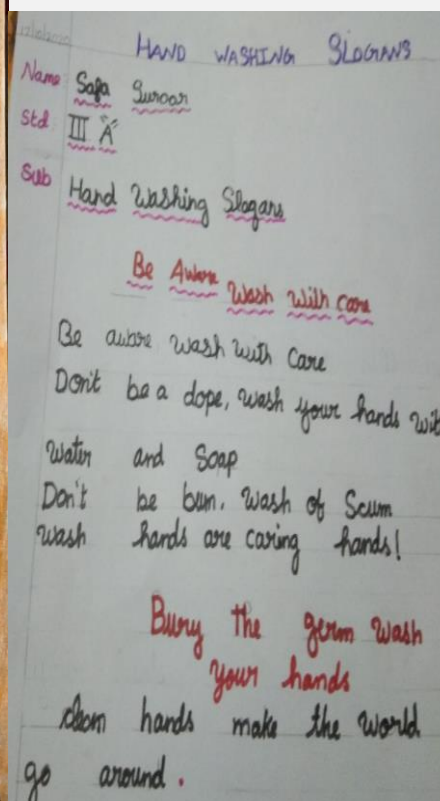 HAND WASHING SLOGANS
Name: Safa Suroor
Std III "A"
Sub Hand Washing Slogans
Be Aware Wash With Care
Be aware wash with care
Don't be a dope, wash your hands wit
Water and Soap
Don't be bum, wash of Scum
Wash hands are caring hands!
Bury the germ wash
your hands
clean hands make the world
go around.